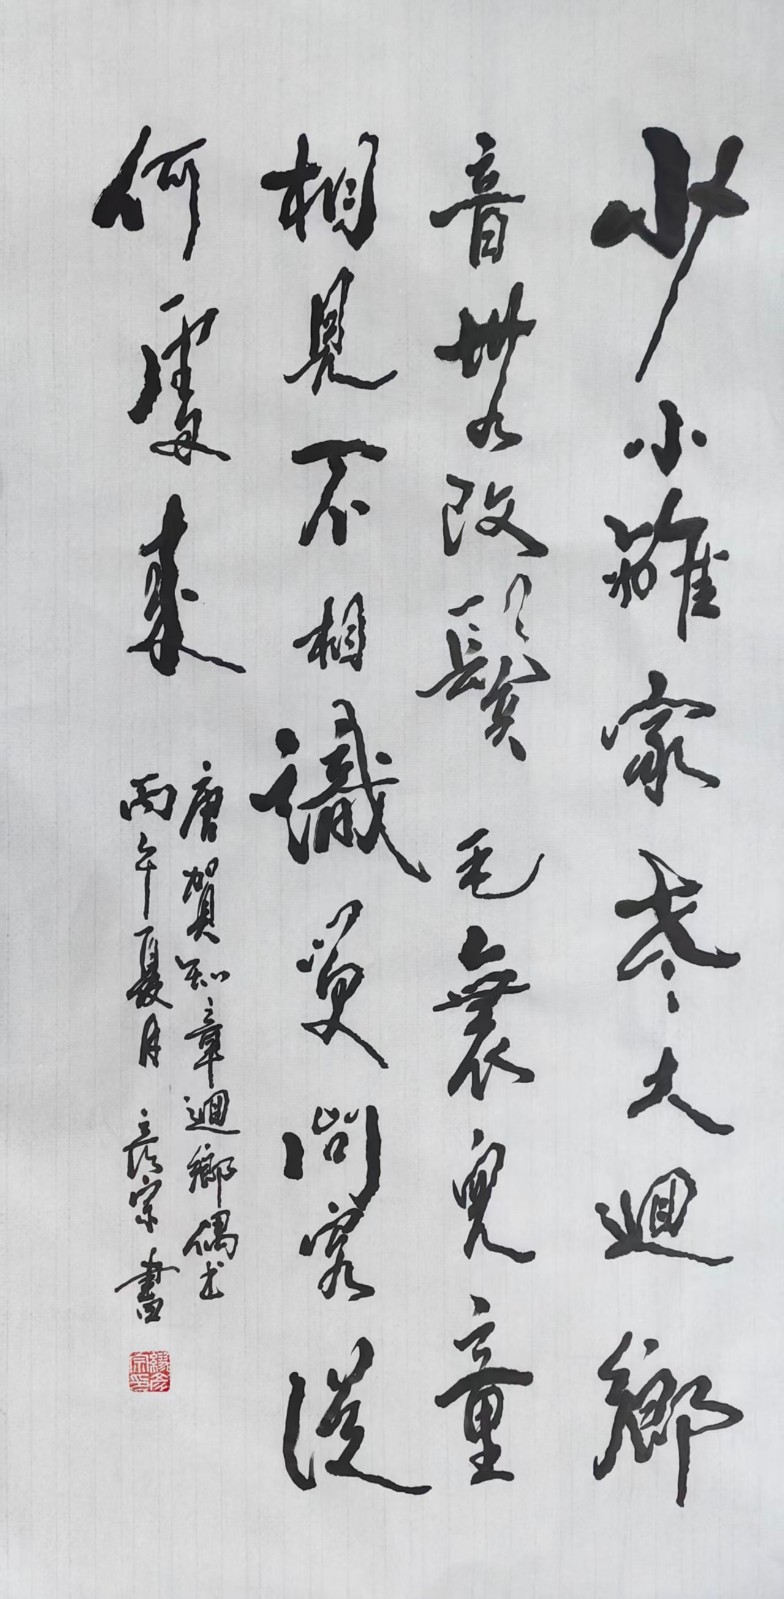 少小離家老大迴鄉
音無改鬢毛衰兒童
相見不相識笑問客從
何處來
唐賀知章迴鄉偶书
丙午夏月宗書